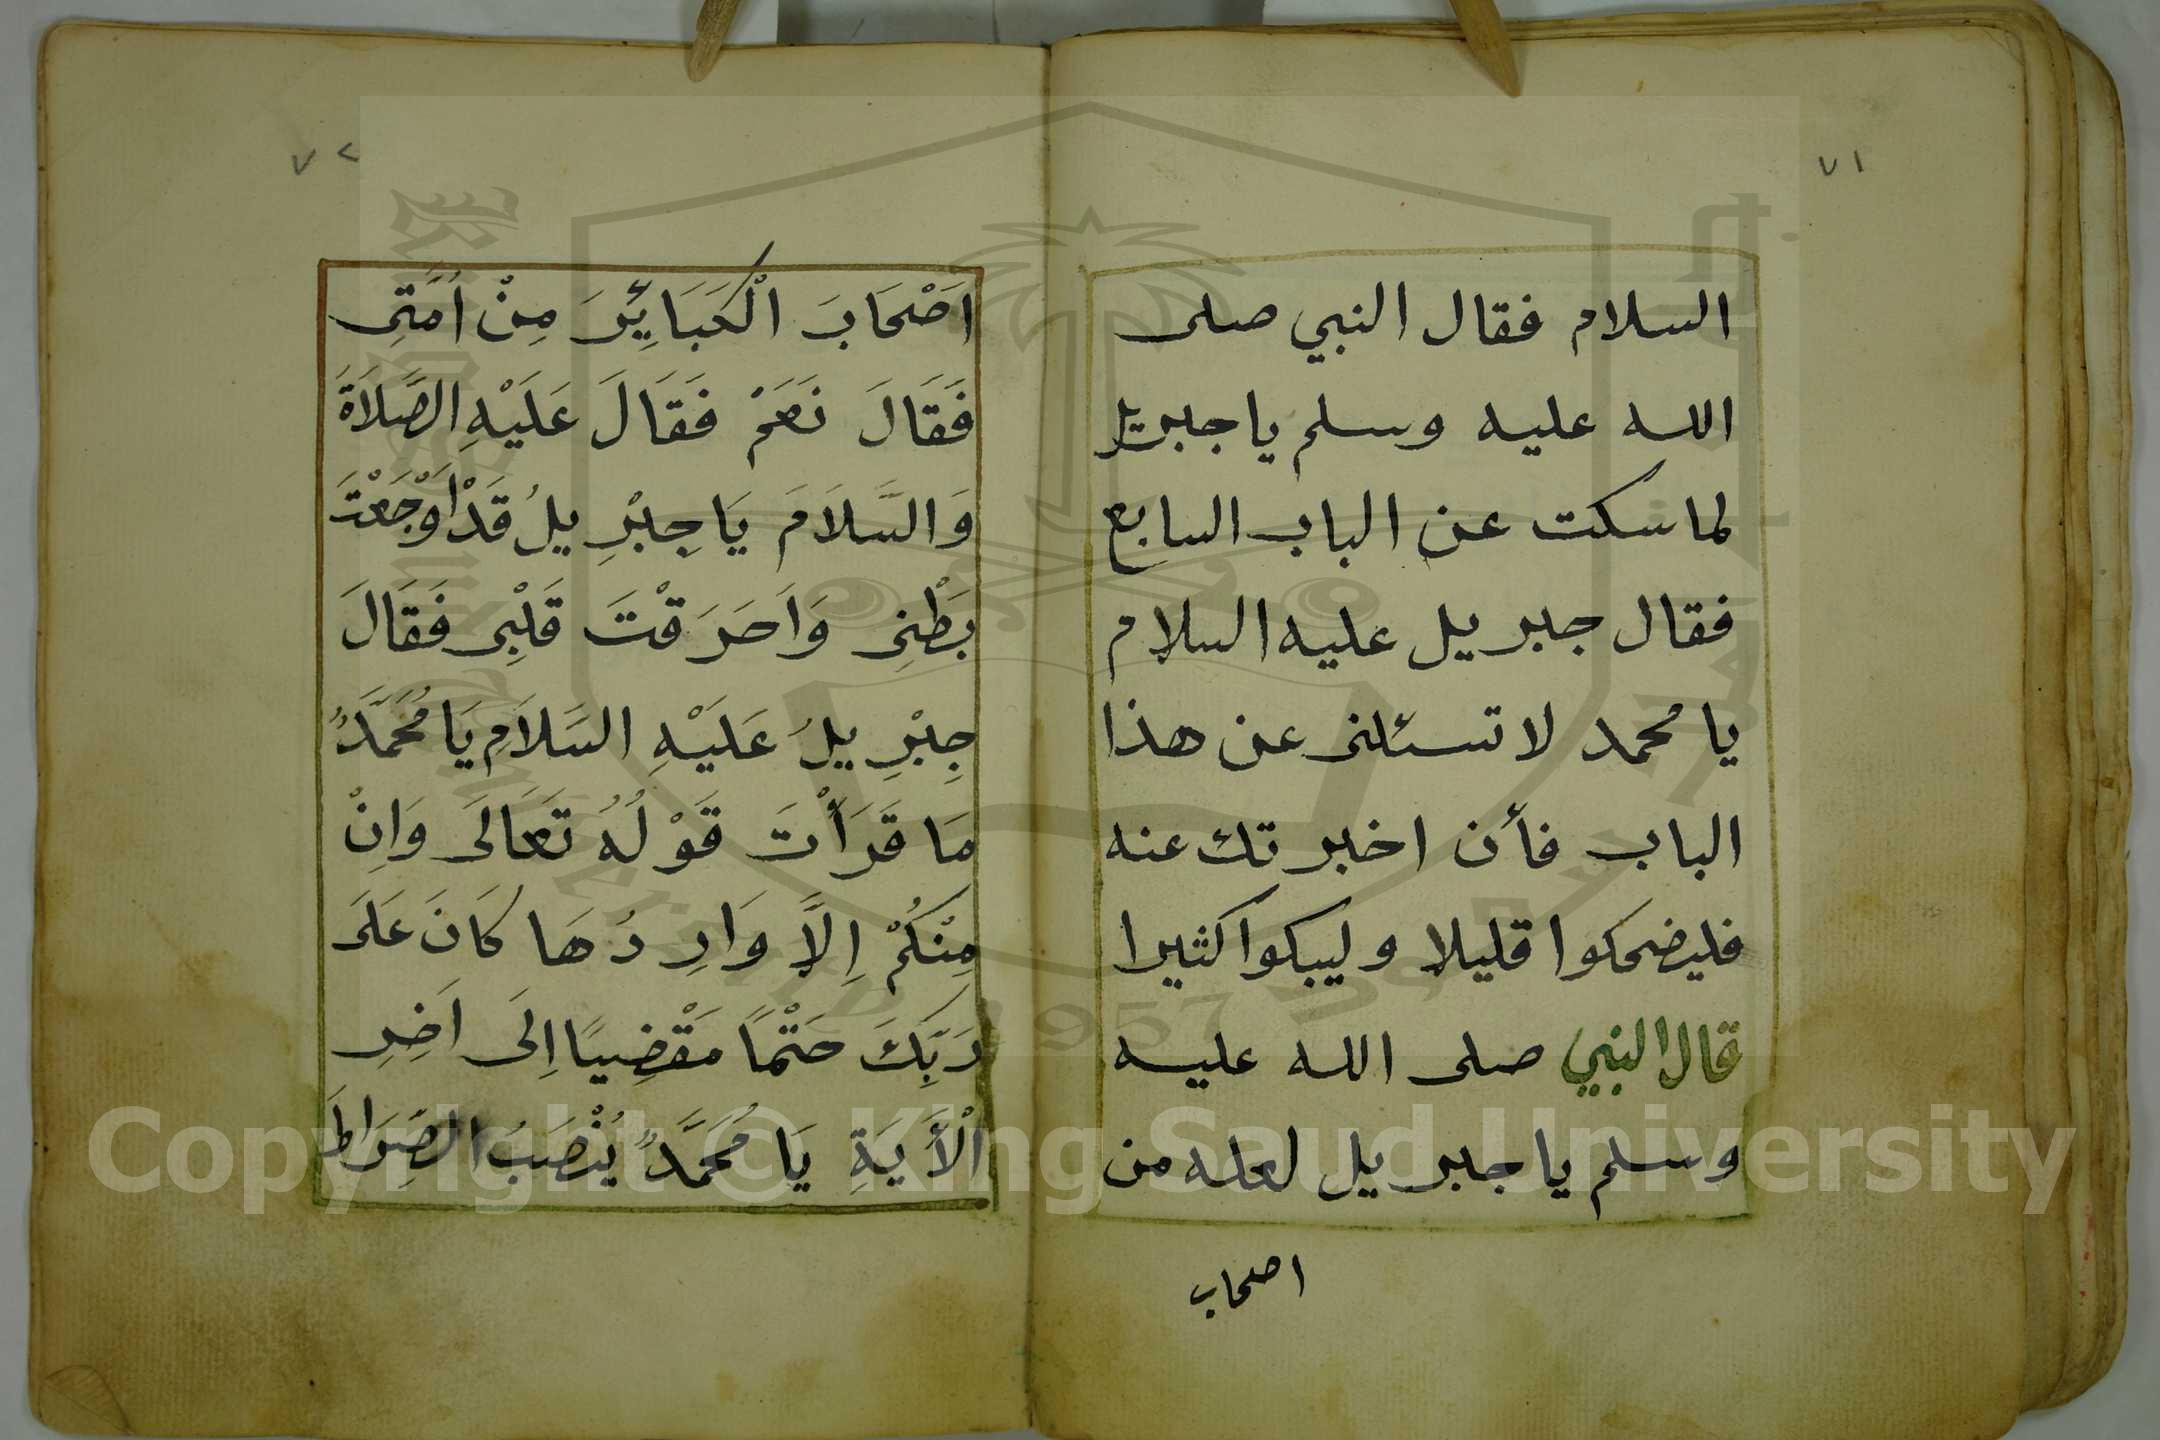 ٧١
السلام فقال النبي صلى
الله عليه وسلم يا جبريل
لما سكت عن الباب السابع
فقال جبريل عليه السلام
يا محمد لا تسئلنى عن هذا
الباب فأن اخبرتك عنه
فليضحكوا قليلا وليبكوا كثيرا
قال النبي صلى الله عليه
وسلم يا جبريل لعله من
اصحاب
٧٢
اَصْحَابَ الْكَبَائِرَ مِنْ اُمَّتِى
فَقَالَ نَعَمْ فَقَالَ عَلَيْهِ الصَّلَاةَ
وَالسَّلَامَ يَا جِبْرِيلُ قَدْ اَوْجَعْتَ
بَطْنِى وَاَحَرَقْتَ قَلْبِى فَقَالَ
جِبْرِيلُ عَلَيْهِ السَّلَامِ يَا مُحَمَّدُ
مَا قَرَأْتَ قَوْلُهُ تَعَالَى وَاِنْ
مِنْكُمْ اِلَّا وَارِدُهَا كَانَ عَلَى
رَبِّكَ حَتْمًا مَقْضِيًا اِلَى اَخِرِ
الْأَيَةِ يَا مُحَمَّدُ يُنْصَبُ الصِّرَاطَ
Copyright © King Saud University
1957